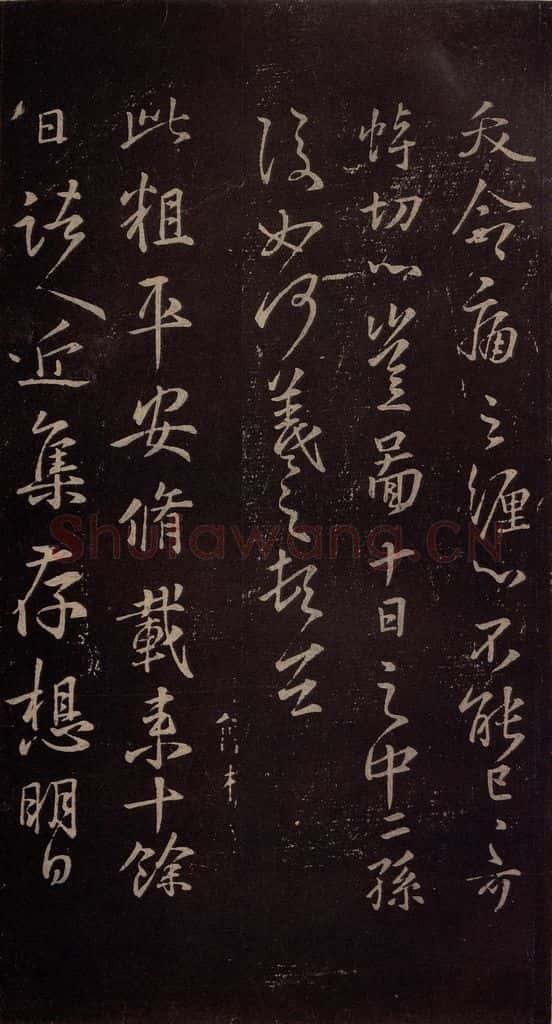 夭命痛之纏心不能已已可
悼切心豈圖十日之中二孫
復如何羲之頓首
此粗平安脩載来十餘
日諸人近集存想明日
Shufawang.CN